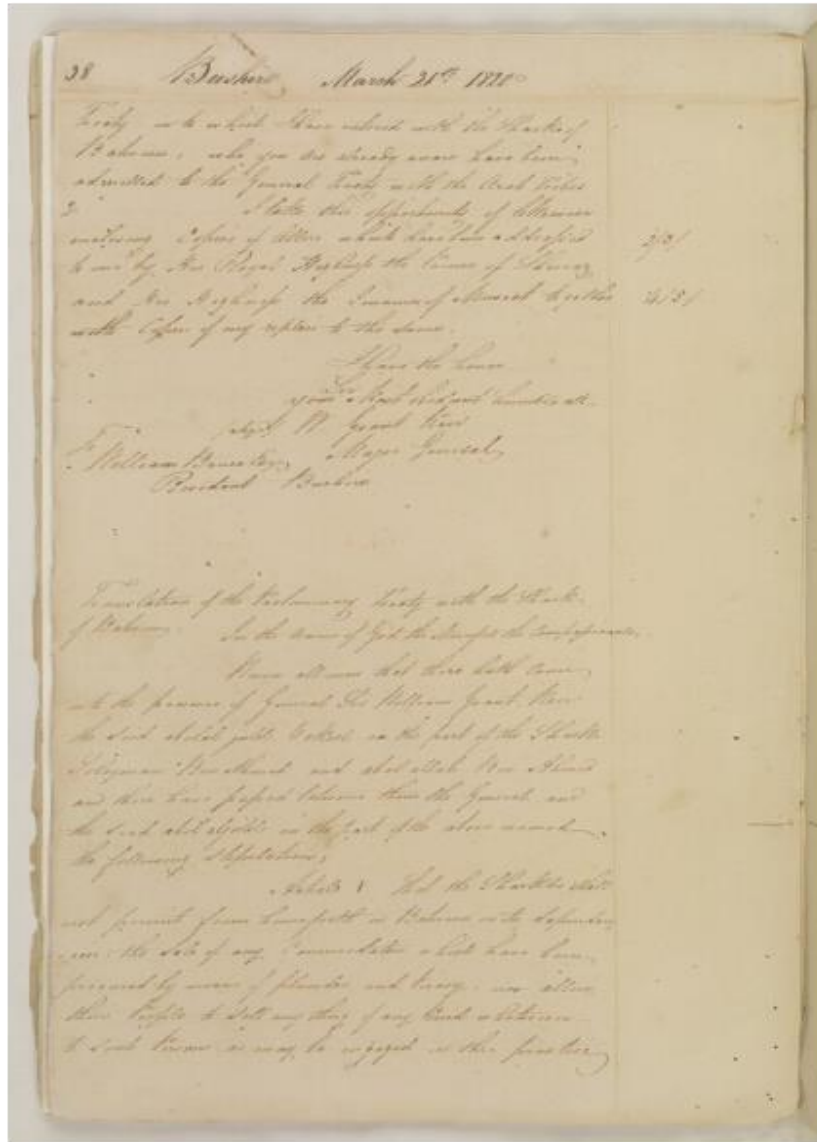 38 Bushire March 21st 1820
Treaty into which I have entered with the Shaiks of
Bahrein, who you are already aware have been
admitted to the General Treaty with the Arab Tribes
2 I take this opportunity of likewise
enclosing Copies of letters which have been addressed
to me by His Royal Highness the Prince of Sheeraz
and His Highness the Imaum of Muscat together
with Copies of my replies to the same.
I have the honor
Sir
your Most obedient humble
Sigd. W. Grant Keir
Major General
To William Bruce Esqr.
Resident Bushire
Translation of the Preliminary Treaty with the Shaiks
of Bahrein. In the name of God the Merciful the Compassionate.
Know all men that there hath come
into the presence of General Sir William Grant Keir
the Sied Abdul on the part of the Shaiks
Soleyman Bin Ahmed and Abdullah Bin Ahmed
and there have passed between them the General and
the Sied on the part of the above named
the following stipulations,
Article 1 That the Shaiks shall
not permit from henceforth in Bahrein or its dependen
cies the sale of any Commodities which have been
procured by means of plunder and Piracy, nor allow
their People to sell any thing of any kind whatsoever
to such Persons as may be engaged in the practice